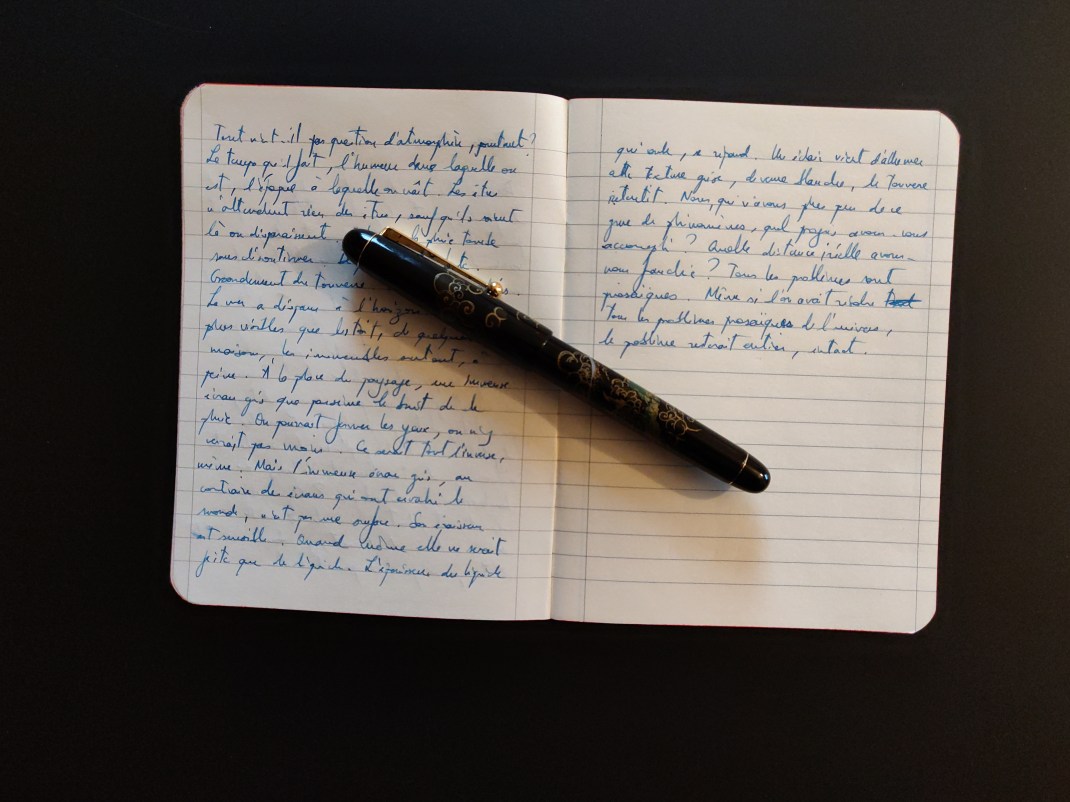 Tout n'est-il pas question d'atmosphère, pourtant?
Le temps qu'il fait, l'humeur dans laquelle on
est, l'époque à laquelle on naît. Les êtres
n'attendent rien des êtres, sauf qu'ils soient
là ou disparaissent la pluie tombe
sans discontinuer.
Grondement du tonnerre
La mer a disparu à l'horizon
plus visibles que les toits, de quelques
maisons, les immeubles autour, à
peine. À la place du paysage, une immense
écran gris que parsème le bruit de la
pluie. On pourrait fermer les yeux, on n'y
verrait pas moins. Ce serait tout l'inverse,
même. Mais l'immense écran gris, au
contraire des écrans qui ont envahi le
monde, n'est pas une surface. Son épaisseur
est sensible. Quand même elle ne serait
faite que de liquide. L'épaisseur du liquide
qui se répand. Un éclair vient d'allumer
cette texture grise, devenue blanche, le tonnerre
retentit. Nous, qui n'avons plus peur de ce
genre de phénomènes, quel progrès avons-nous
accompli? Quelle distance réelle avons-
nous franchie? Tous les problèmes sont
prosaïques. Même si l'on avait résolu
tous les problèmes prosaïques de l'univers,
le problème resterait entier, intact.